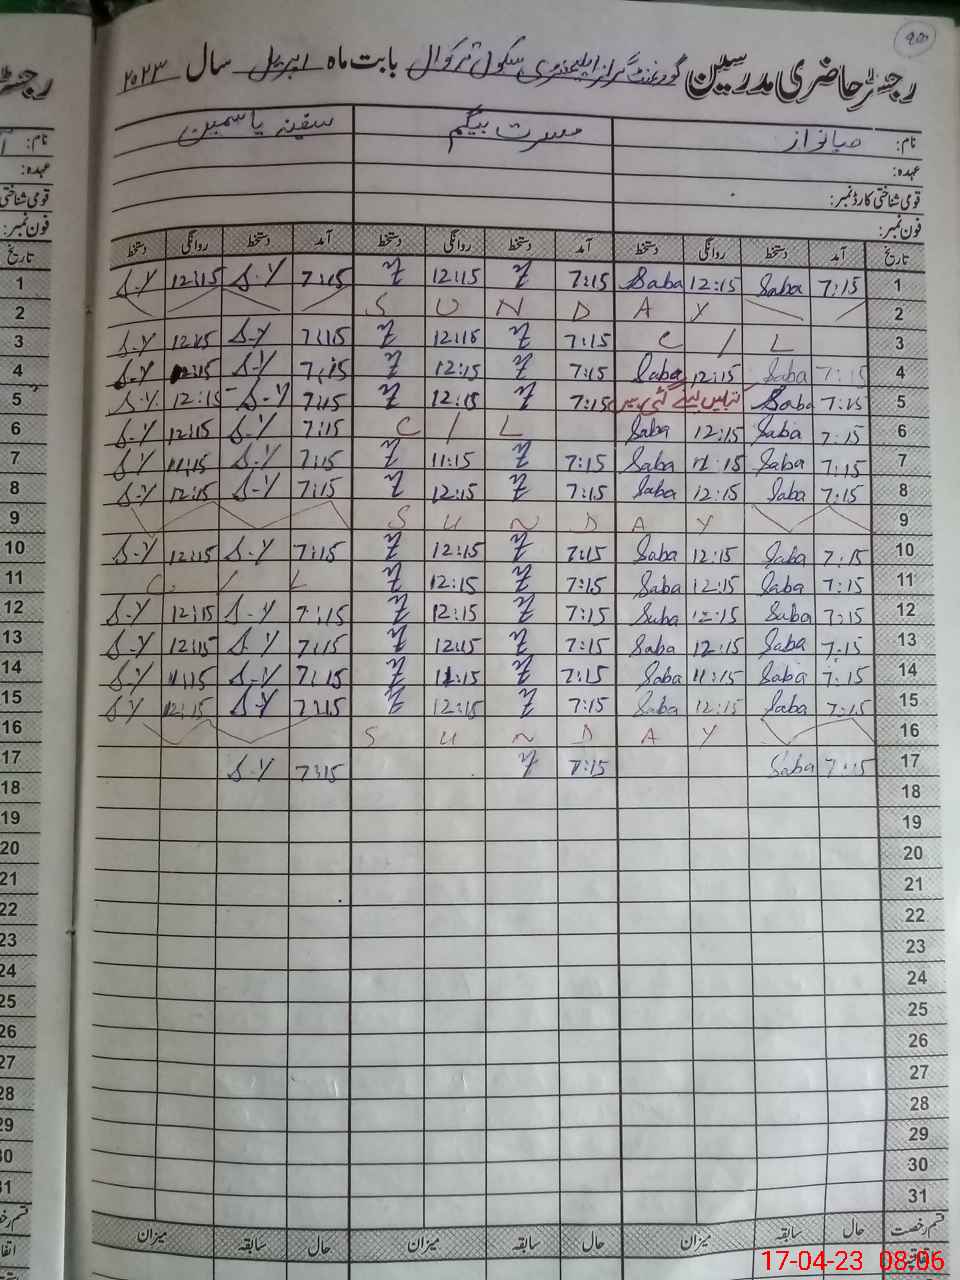 رجسٹر حاضری مدرسین گورنمنٹ گرلز ایلیمنٹری سکول ترکوال بابت ماہ اپریل سال ۲۰۲۳
نام: صبا نواز مسرت بیگم سفینہ یاسمین
عہدہ:
قومی شناختی کارڈ نمبر:
فون نمبر:
تاریخ آمد دستخط روانگی دستخط آمد دستخط روانگی دستخط آمد دستخط روانگی دستخط
1 7:15 Saba 12:15 Saba 7:15 12:15 7:15 S-Y 12:15 S-Y
2 S U N D A Y
3 C / L 7:15 12:15 7:15 S-Y 12:15 S-Y
4 7:15 Saba 12:15 Saba 7:15 12:15 7:15 S-Y 12:15 S-Y
5 7:15 Saba 7:15 12:15 7:15 S-Y 12:15 S-Y
6 7:15 Saba 12:15 Saba C / L 7:15 S-Y 12:15 S-Y
7 7:15 Saba 11:15 Saba 7:15 11:15 7:15 S-Y 11:15 S-Y
8 7:15 Saba 12:15 Saba 7:15 12:15 7:15 S-Y 12:15 S-Y
9 S U N D A Y
10 7:15 Saba 12:15 Saba 7:15 12:15 7:15 S-Y 12:15 S-Y
11 7:15 Saba 12:15 Saba 7:15 12:15 C / L
12 7:15 Saba 12:15 Saba 7:15 12:15 7:15 S-Y 12:15 S-Y
13 7:15 Saba 12:15 Saba 7:15 12:15 7:15 S-Y 12:15 S-Y
14 7:15 Saba 11:15 Saba 7:15 11:15 7:15 S-Y 11:15 S-Y
15 7:15 Saba 12:15 Saba 7:15 12:15 7:15 S-Y 12:15 S-Y
16 S U N D A Y
17 7:15 Saba 7:15 7:15 S-Y
18
19
20
21
22
23
24
25
26
27
28
29
30
31
قسم رخصت حال سابقہ میزان حال سابقہ میزان حال سابقہ میزان
17-04-23 08:06